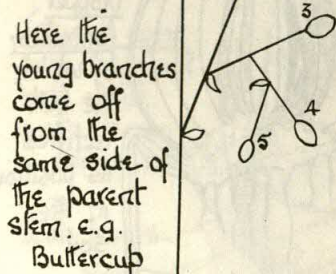 Here the
young branches
come off
from the
same side of
the parent
stem. e.g.
Buttercup
3
4
5